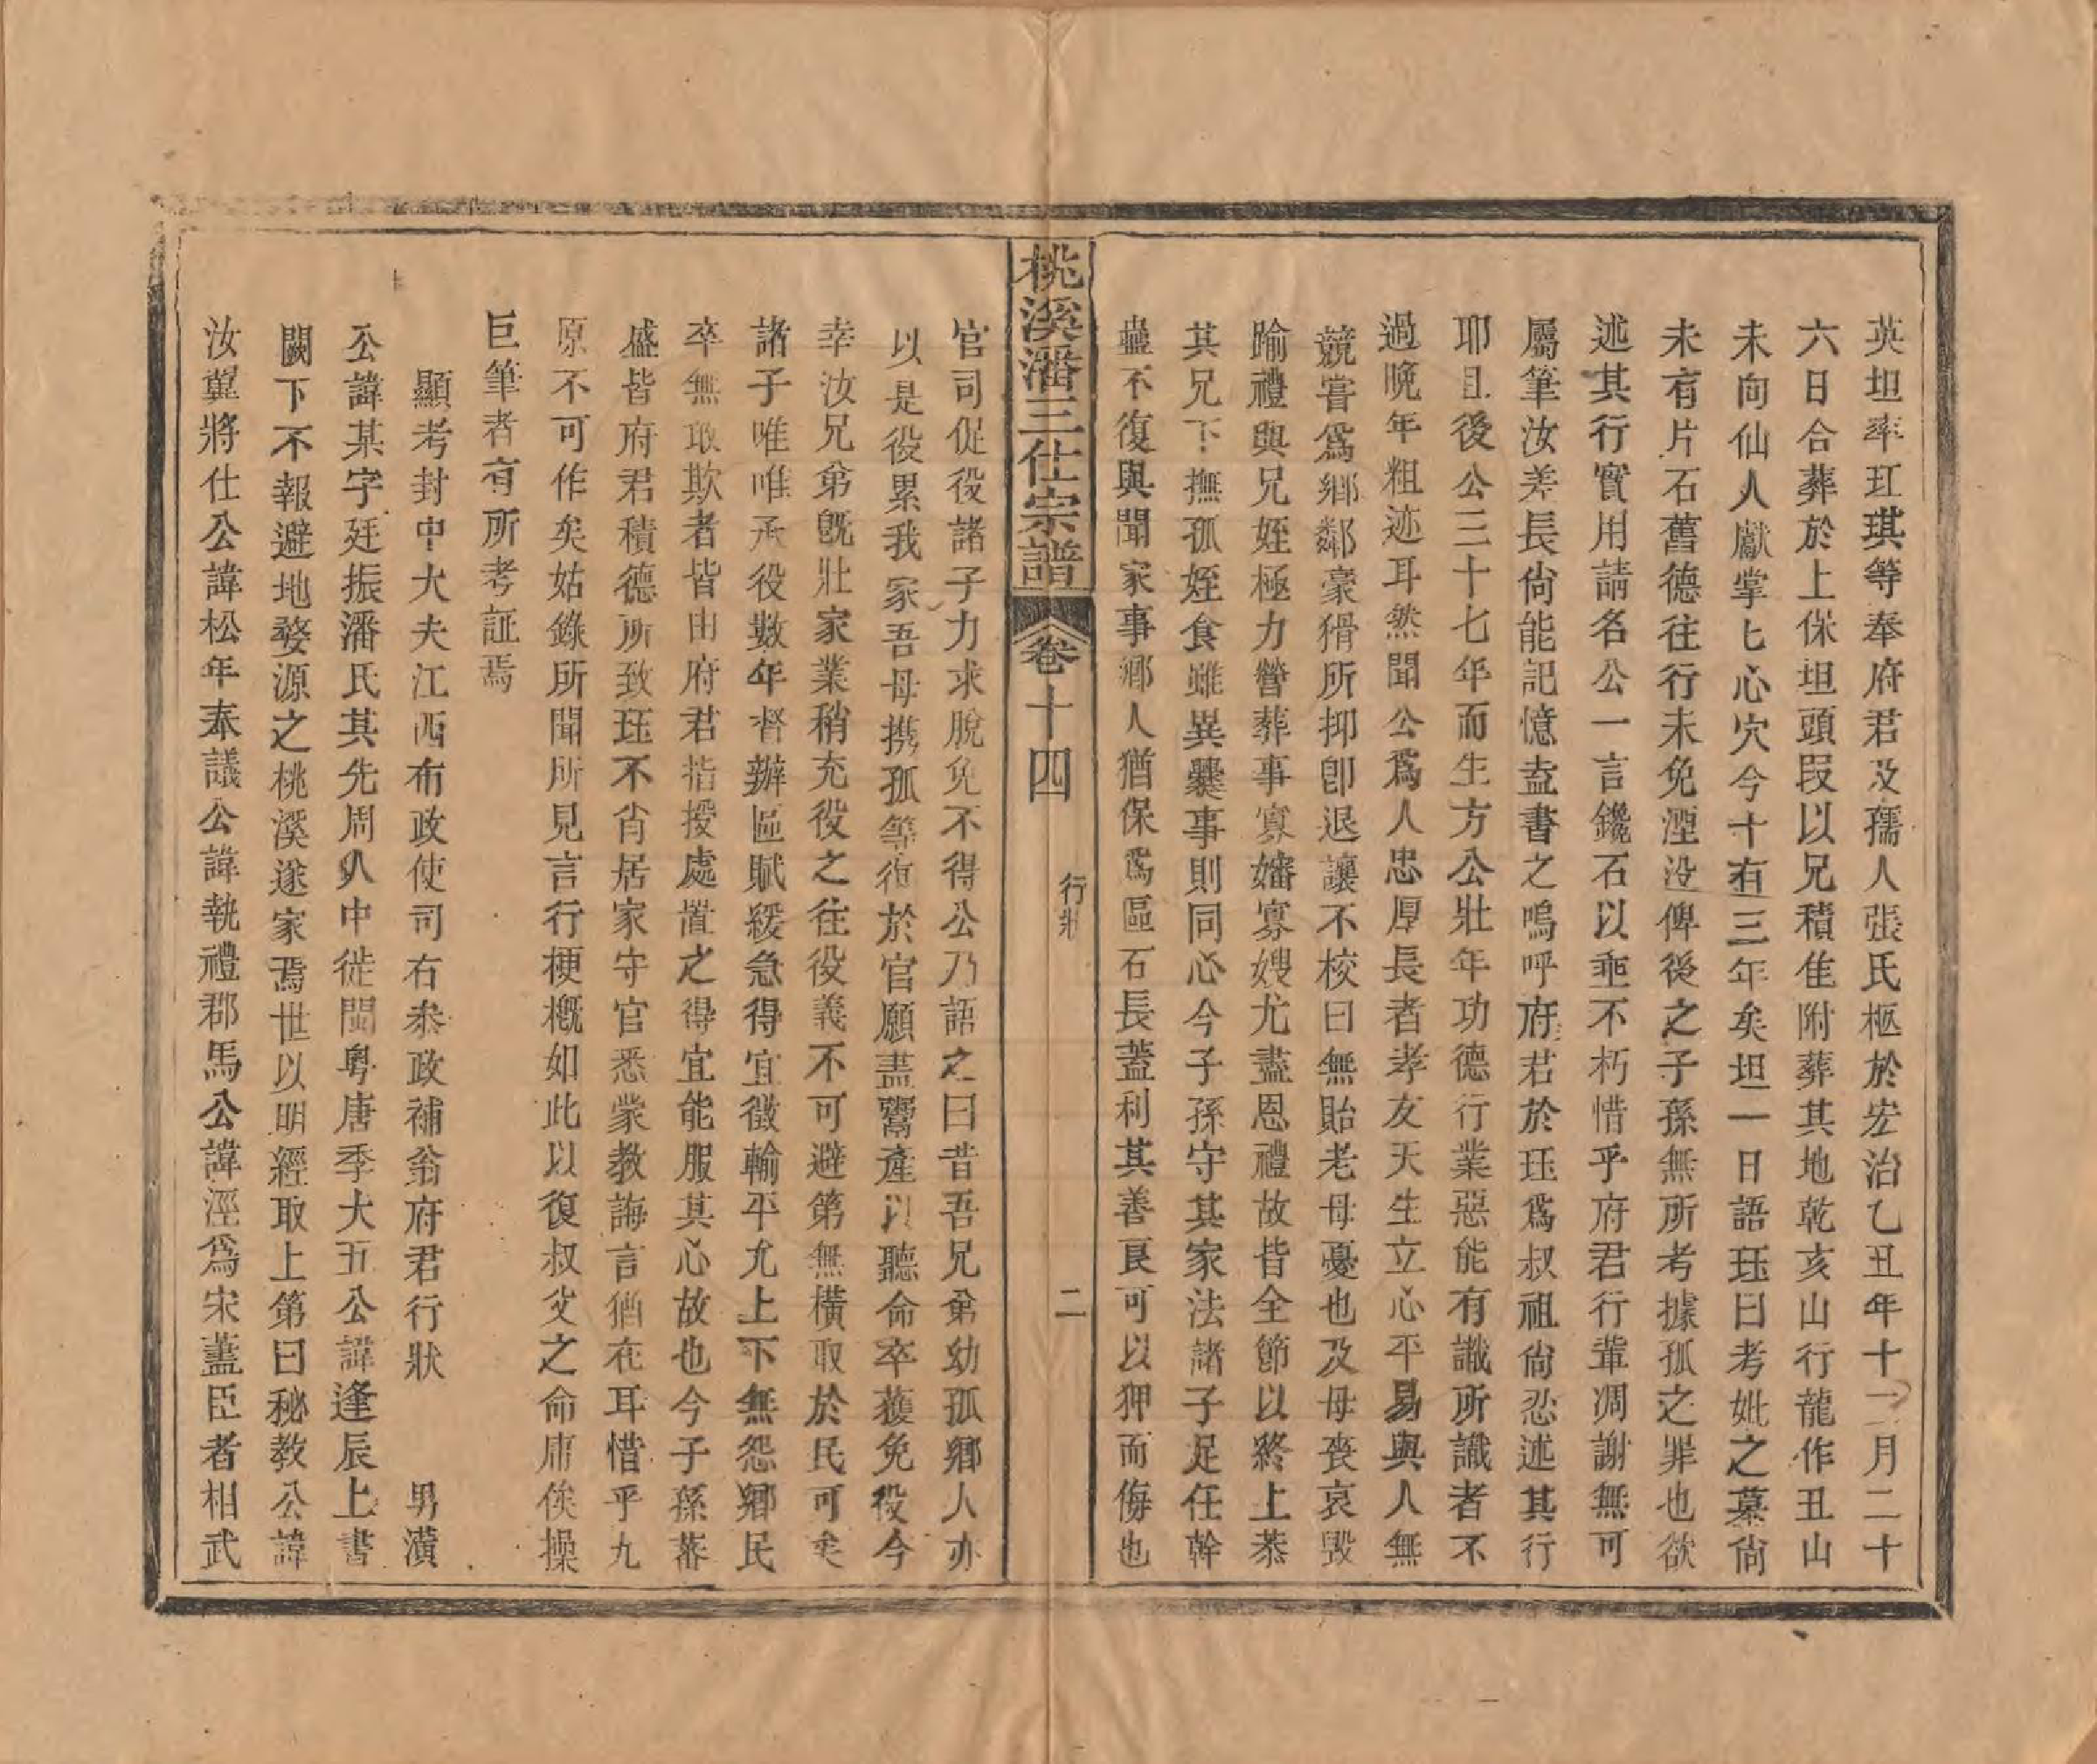 英坦率玒琪等奉府君及孺人張氏柩於宏治乙丑年十二月二十
六日合葬於上保坦頭段以兄積隹附葬其地乾亥山行龍作丑山
未向仙人獻掌匕心穴今十有三年矣坦一日語珏曰考妣之墓尚
未有片石舊德往行未免湮没俾後之子孫無所考據孤之罪也欲
述其行實用請名公一言鑱石以垂不朽惜乎府君行輩凋謝無可
屬筆汝差長尙能記憶盍書之嗚呼府君於珏爲叔祖尙忍述其行
耶且後公三十七年而生方公壯年功德行業惡能有識所識者不
過晚年粗迹耳然聞公爲人忠厚長者孝友天生立心平易與人無
競嘗爲鄉鄰豪猾所抑卽退讓不校曰無貽老母憂也及母喪哀毁
踰禮與兄姪極力營葬事寡嬸寡嫂尤盡恩禮故皆全節以終上恭
其兄下撫孤姪食雖異爨事則同心今子孫守其家法諸子足任幹
蠱不復與聞家事鄉人猶保爲區石長蓋利其善良可以狎而侮也
桃溪潘三仕宗譜 卷十四 行狀 二
官司促役諸子力求脫免不得公乃語之曰昔吾兄弟幼孤鄉人亦
以是役累我家吾母携孤等徇於官願盡鬻產以聽命卒獲免役今
幸汝兄弟旣壯家業稍充役之往役義不可避第無橫取於民可矣
諸子唯唯承役數年督辦區賦緩急得宜徵輸平允上下無怨鄉民
卒無敢欺者皆由府君指授處置之得宜能服其心故也今子孫蕃
盛皆府君積德所致珏不肖居家守官悉蒙教誨言猶在耳惜乎九
原不可作矣姑錄所聞所見言行梗概如此以復叔父之命庸俟操
巨筆者有所考証焉
顯考封中大夫江西布政使司右叅政補翁府君行狀 男潢
公諱某字廷振潘氏其先周㕥中徙閩粤唐季大五公諱逢辰上書
闕下不報避地婺源之桃溪遂家焉世以明經取上第曰秘教公諱
汝翼將仕公諱松年奉議公諱執禮郡馬公諱涇爲宋藎臣者相武